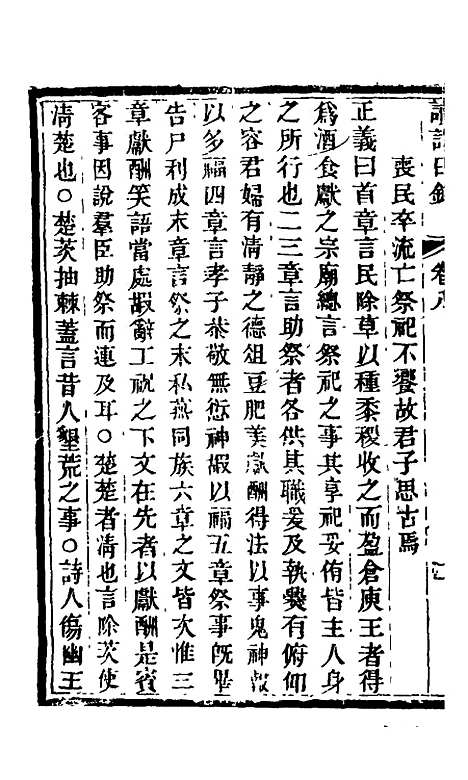 讀詩日錄 卷八
喪民卒流亡祭祀不饗故君子思古焉
正義曰首章言民除草以種黍稷收之而盈倉庾王者得
爲酒食獻之宗廟總言祭祀之事其享祀妥侑皆主人身
之所行也二三章言助祭者各供其職爰及執爨有俯仰
之容君婦有清靜之德俎豆肥美獻酬得法以事鬼神報
以多福四章言孝子恭敬無愆神嘏以福五章祭事旣畢
告尸利成末章言祭之末私燕同族六章之文皆次惟三
章獻酬笑語當處嘏辭工祝之下文在先者以獻酬是賓
客事因說羣臣助祭而連及耳○楚楚者清也言除茨使
清楚也○楚茨抽棘蓋言昔人墾荒之事○詩人傷幽王